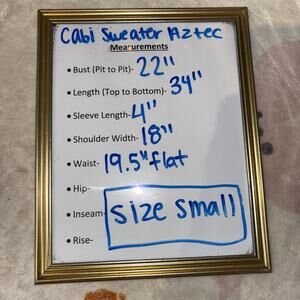 Cabi Sweater Aztec
Measurements
• Bust (Pit to Pit)- 22"
• Length (Top to Bottom)- 34"
• Sleeve Length- 4"
• Shoulder Width- 18"
• Waist- 19.5" flat
• Hip-
• Inseam-
size small
• Rise-